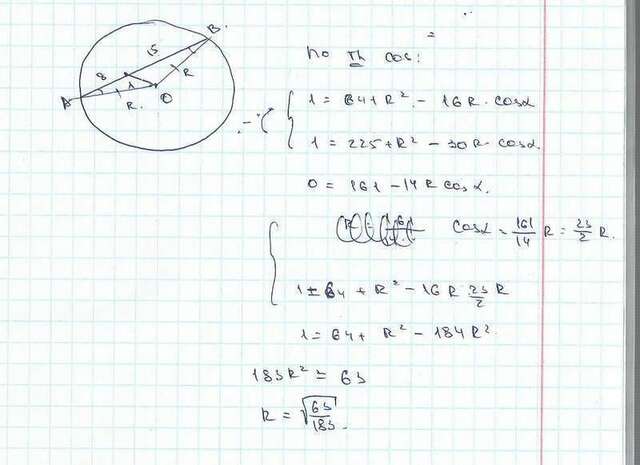 B.
15
R
8
1
A
R.
O
по Th cos:
1 = 64 + R² - 16R·cosα
- 1 = 225 + R² - 30R·cosα.
0 = 161 - 14R cosα.
cosα = 161/14 R = 23/2 R.
1 = 64 + R² - 16R 23/2 R
1 = 64 + R² - 184R².
183R² = 63
R = √63/183.